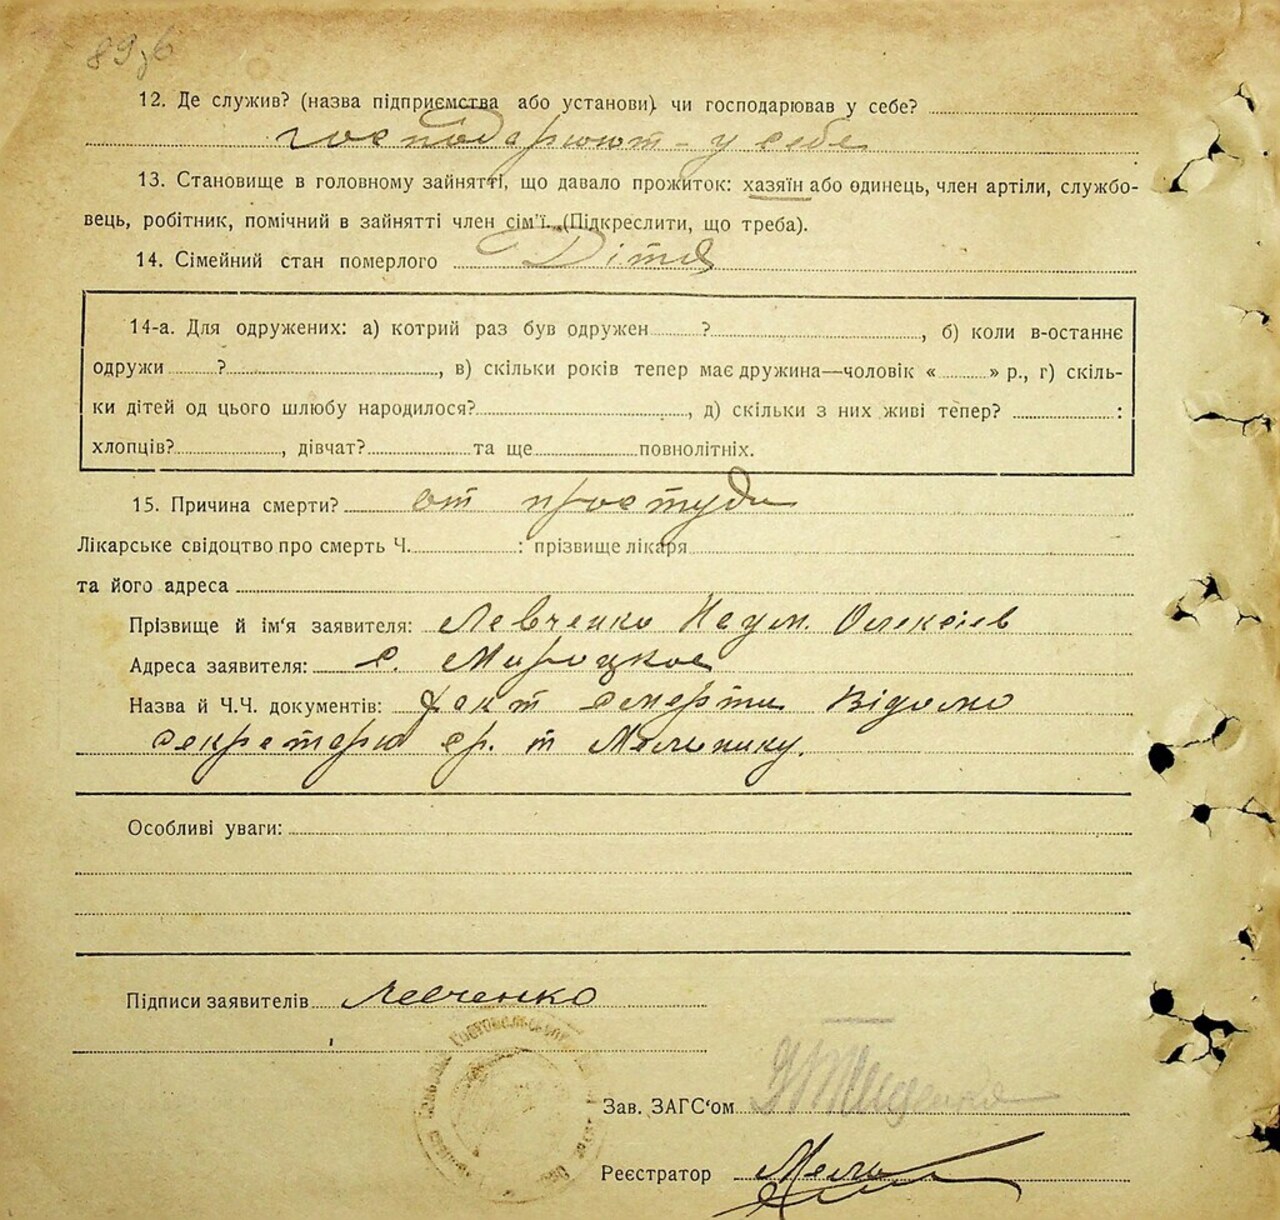 12. Де служив? (назва підприємства або установи) чи господарював у себе?
господарюют - у себе
13. Становище в головному зайнятті, що давало прожиток: хазяїн або одинець, член артіли, службо-
вець, робітник, помічний в зайнятті член сім'ї. (Підкреслити, що треба).
14. Сімейний стан померлого Дітя
14-а. Для одружених: а) котрий раз був одружен ? , б) коли в-останнє
одружи ? , в) скільки років тепер має дружина—чоловік « » р., г) скіль-
ки дітей од цього шлюбу народилося? , д) скільки з них живі тепер? :
хлопців? , дівчат? та ще повнолітніх.
15. Причина смерти? от простуди
Лікарське свідоцтво про смерть Ч. : прізвище лікаря
та його адреса
Прізвище й ім'я заявителя: Левченко Наум. Олексіев
Адреса заявителя: с. Мироцкое
Назва й Ч.Ч. документів: факт смерти Відомо
секретарю ср. т Мельнику.
Особливі уваги:
Підписи заявителів Левченко
Зав. ЗАГС'ом
Реєстратор